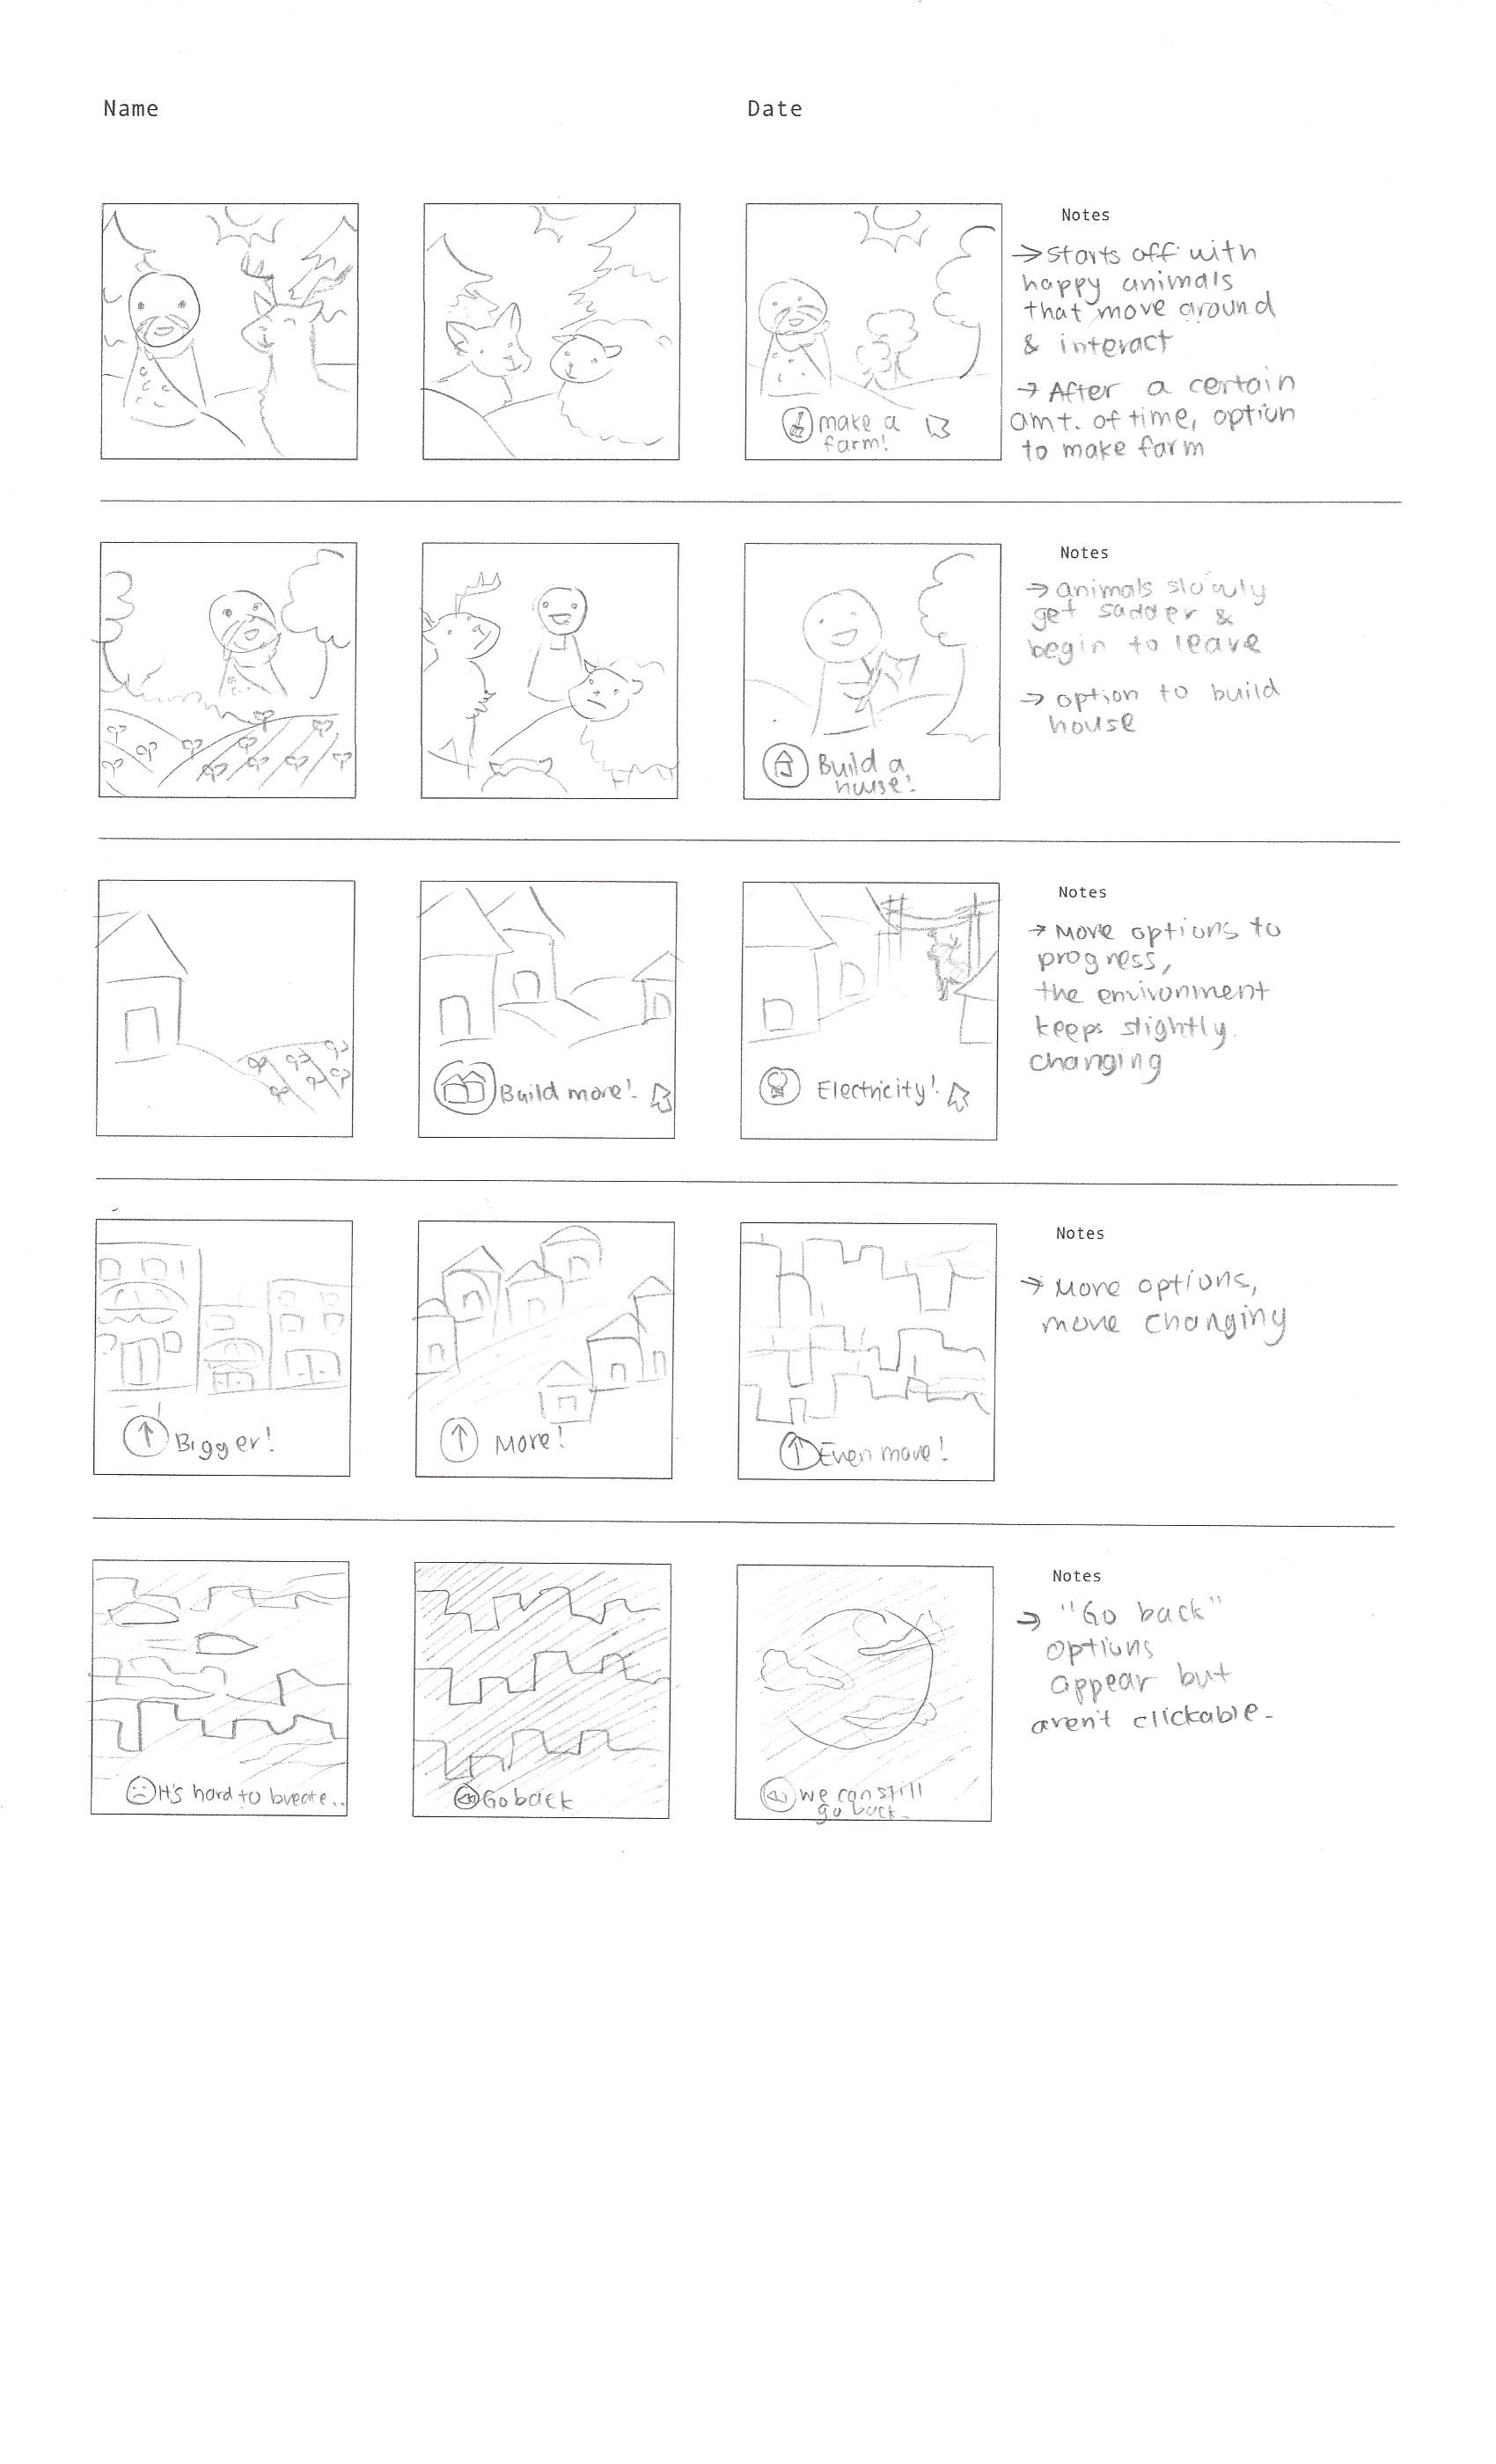 Name
Date
make a
farm!
Notes
→ Starts off with
happy animals
that move around
& interact
→ After a certain
amt. of time, option
to make farm
Build a
house!
Notes
→ animals slowly
get sadder &
begin to leave
→ option to build
house
Build more!
Electricity!
Notes
→ More options to
progress,
the environment
keeps slightly
changing
Bigger!
More!
Even more!
Notes
→ More options,
more changing
It's hard to breate..
Go back
we can still
go back.
Notes
→ "Go back"
options
appear but
aren't clickable.